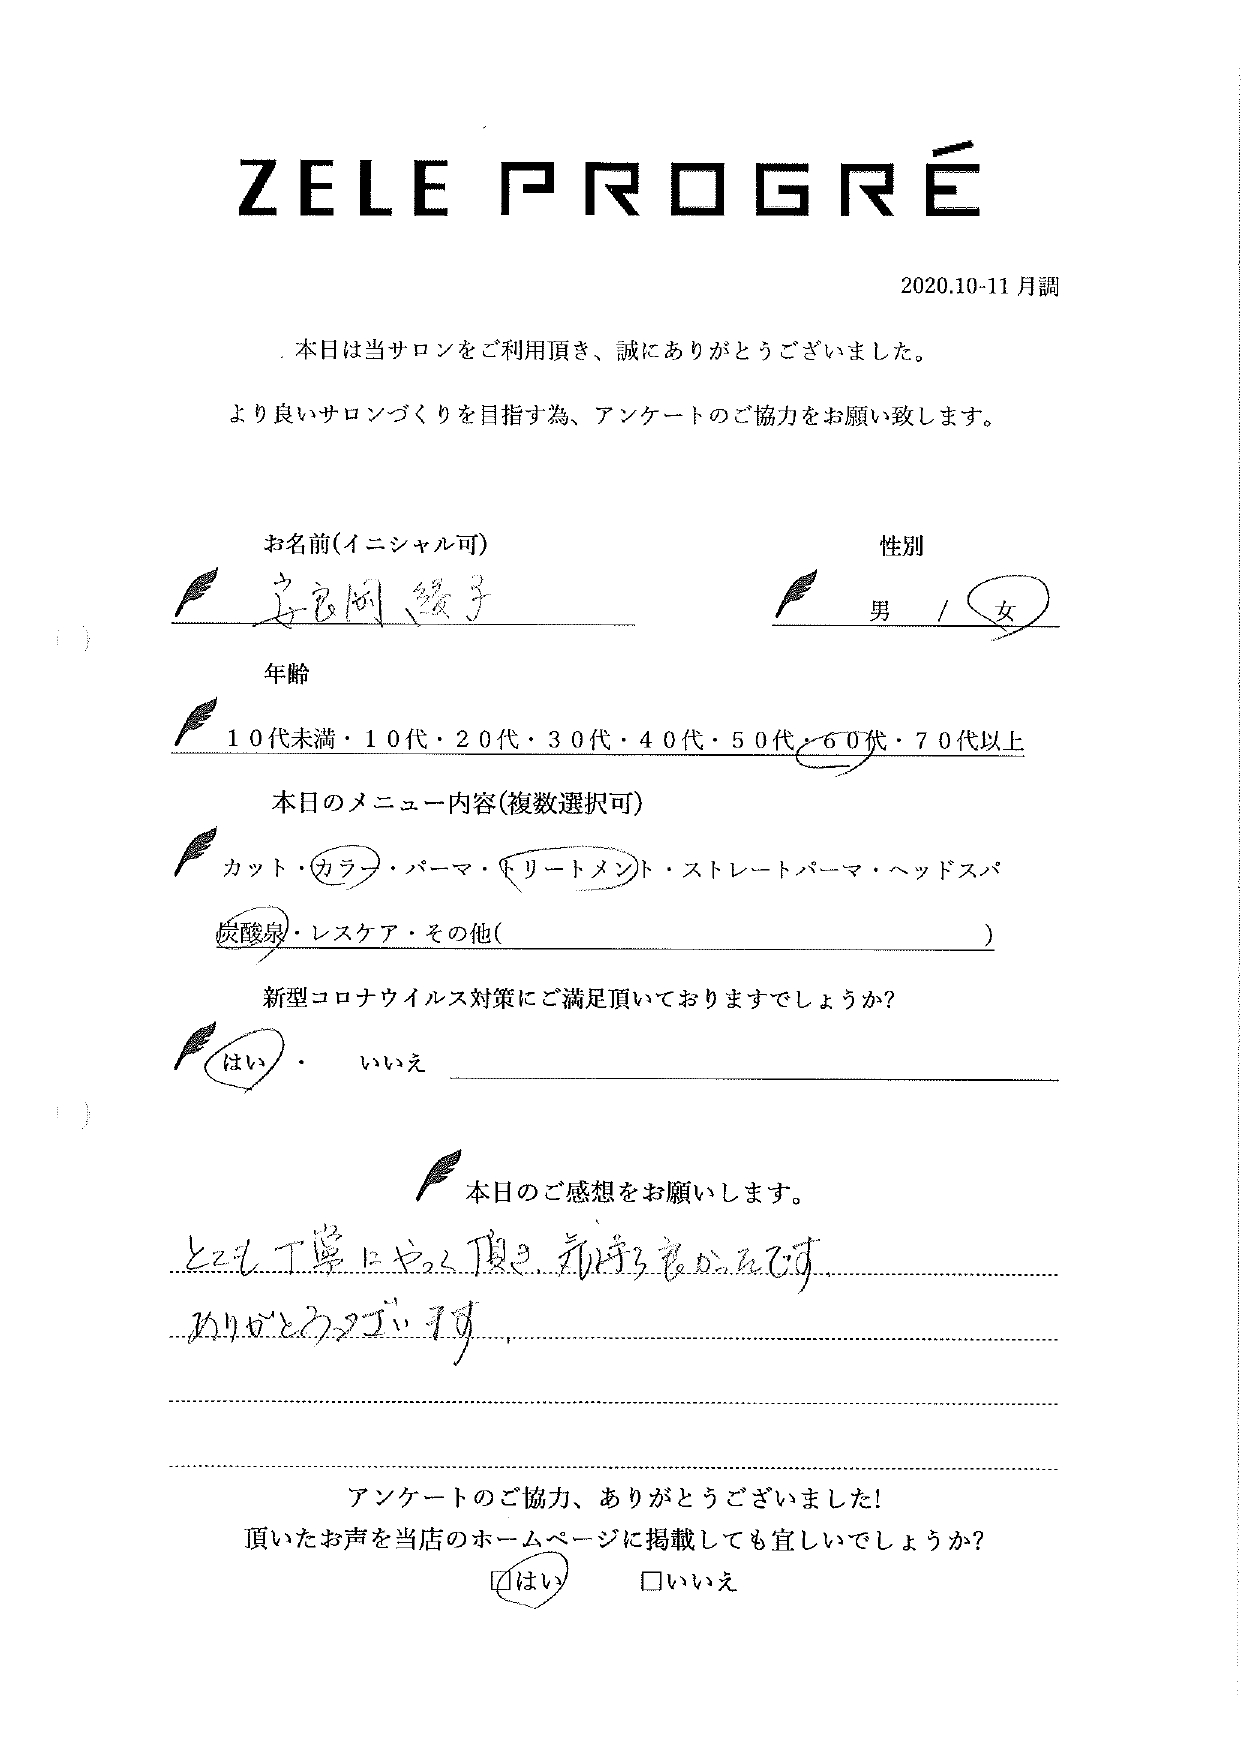 ZELE PROGRÉ
2020.10-11 月調
本日は当サロンをご利用頂き、誠にありがとうございました。
より良いサロンづくりを目指す為、アンケートのご協力をお願い致します。
お名前(イニシャル可) 性別
安良岡 綾子 男 / 女
年齢
１０代未満・１０代・２０代・３０代・４０代・５０代・６０代・７０代以上
本日のメニュー内容(複数選択可)
カット・カラー・パーマ・トリートメント・ストレートパーマ・ヘッドスパ
炭酸泉・レスケア・その他( )
新型コロナウイルス対策にご満足頂いておりますでしょうか?
はい ・ いいえ
本日のご感想をお願いします。
とても丁寧にやって頂き、気持ち良かったです。
ありがとうございます。
アンケートのご協力、ありがとうございました!
頂いたお声を当店のホームページに掲載しても宜しいでしょうか?
□はい □いいえ